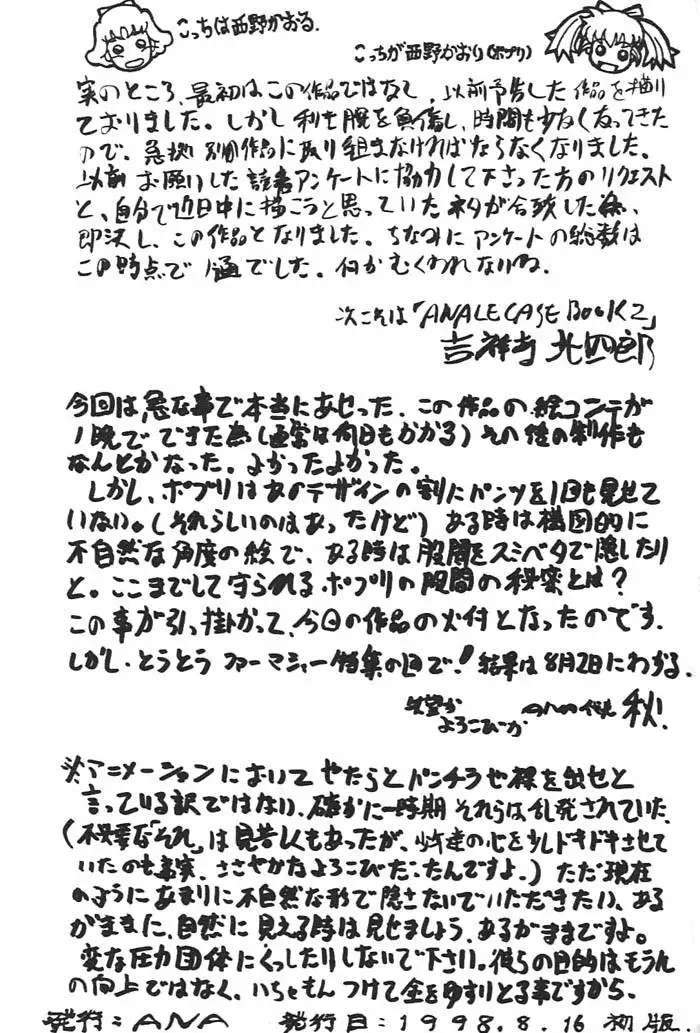 こっちは西野かおる.
こっちが西野かおり(ポプリ)
実のところ、最初はこの作品ではなく、以前予告した作品を描い
ておりました。しかし利き腕を負傷し、時間も少なくなってきた
ので、急拠 別の作品に取り組まなければならなくなりました。
以前 お願いした読者アンケートに協力して下さった方のリクエスト
と、自分で近日中に描こうと思っていたネタが合致した為、
即決し、この作品となりました。ちなみにアンケートの総数は
この時点で 1通でした。何かむくわれないね.
次こそは「ANALE CASE BOOK 2」
吉祥寺 北四郎
今回は急な事で本当にあせった. この作品の絵コンテが
1晩で できた為(通常は何日もかかる)その後の制作も
なんとかなった. よかったよかった。
しかし、ポプリはあのデザインの割にパンツを1回も見せて
いない。(それらしいのはあったけど) ある時は構図的に
不自然な角度の絵で、ある時は股間をスミベタで隠したり
と。ここまでして守られるポプリの股間の秘密とは?
この事が引っ掛かって、今回の作品の火付となったのです.
しかし、とうとう ファーマシャー特集の回で…! 結果は8月2日にわかる.
よろこびーか 秋!
※アニメーションにおいて やたらとパンチラや裸を出せと
言っている訳ではない. 確かに一時期 それらは乱発されていた.
(不必要な“それ”は見苦しくもあったが、少年達の心を少しドキドキさせて
いたのも事実. ささやかなよろこびだったんですよ.) ただ現在
のようにあまりに不自然な形で隠さないでいただきたい、ある
がままに、自然に見える時は見せましょう. あるがままですよ。
変な圧力団体にくっしたりしないで下さい。彼らの目的はもうん
の向上ではなく、いちゃもん つけて金をゆすりとる事ですから.
発行:ANA 発行日:1998.8.16 初版.